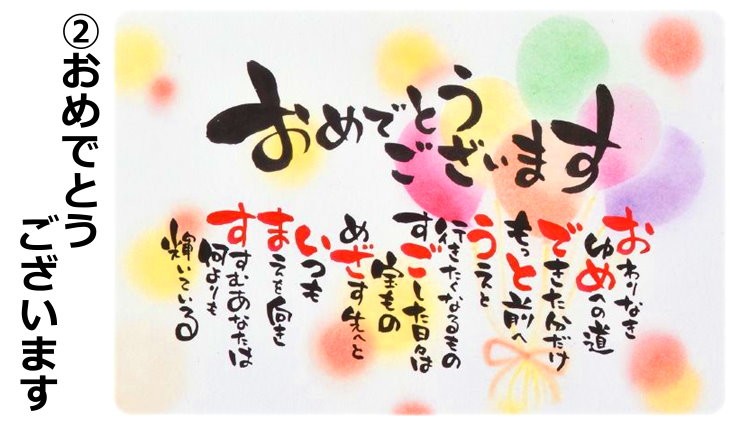 ②おめでとう
ございます
おめでとう
ございます
おわりなき
ゆめへの道
できた分だけ
もっと前へ
うえと
行きたくなるもの
すごした日々は
宝もの
めざす先へと
いつも
まえを向き
すすむあなたは
何よりも
輝いている